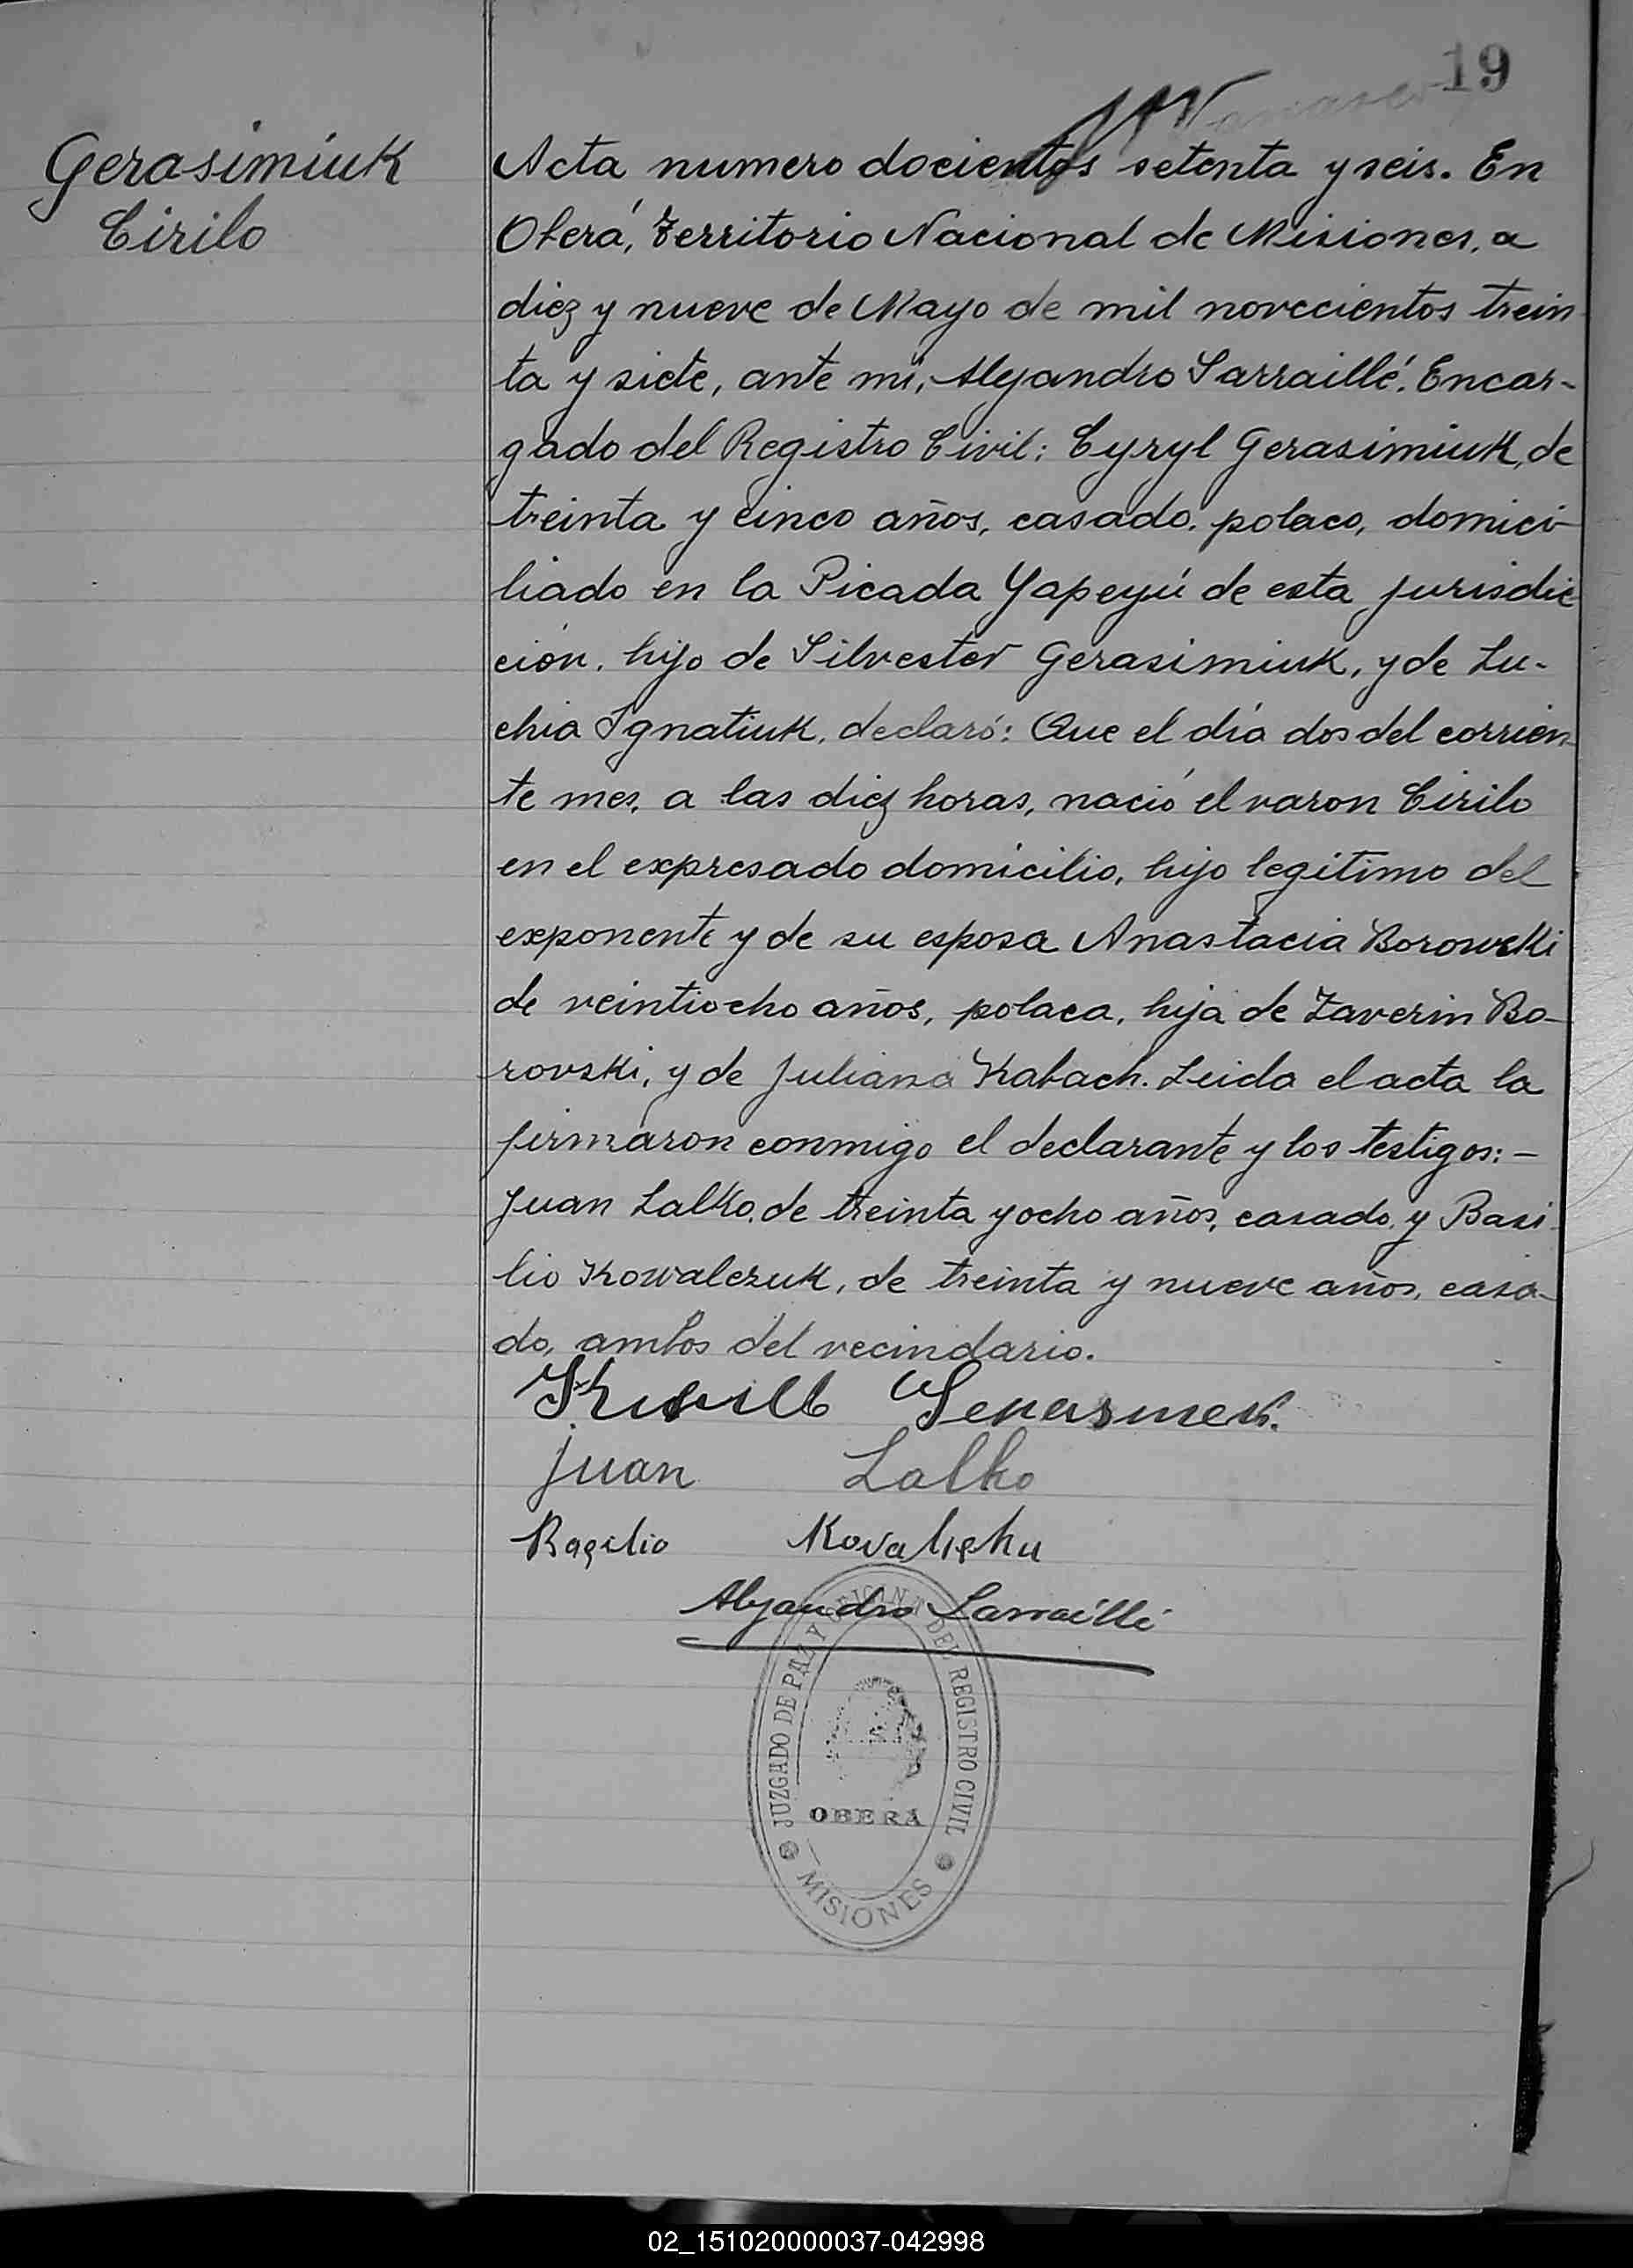 19
Gerasimiuk
Cirilo
Acta numero docientos setenta y seis. En
Oberá, Territorio Nacional de Misiones, a
diez y nueve de Mayo de mil novecientos trein
ta y siete, ante mi, Alejandro Sarraillé, Encar-
gado del Registro Civil: Cyryl Gerasimiuk, de
treinta y cinco años, casado, polaco, domici-
liado en la Picada Yapeyú de esta jurisdic
ción, hijo de Silvester Gerasimiuk, y de Lu-
chia Ignatiuk, declaró: Que el día dos del corrien-
te mes, a las diez horas, nació el varon Cirilo
en el expresado domicilio, hijo legitimo del
exponente y de su esposa Anastacia Borowski
de veintiocho años, polaca, hija de Zaverin Bo-
rovski, y de Juliana Kabach. Leida el acta la
firmaron conmigo el declarante y los testigos: -
Juan Lalko, de treinta y ocho años, casado, y Basi
lio Kowalczuk, de treinta y nueve años, casa-
do, ambos del vecindario.
Juan Lalko
Basilio
Alejandro Sarraillé
JUZGADO DE PAZ Y OFICINA DEL REGISTRO CIVIL
OBERA
MISIONES
02_151020000037-042998